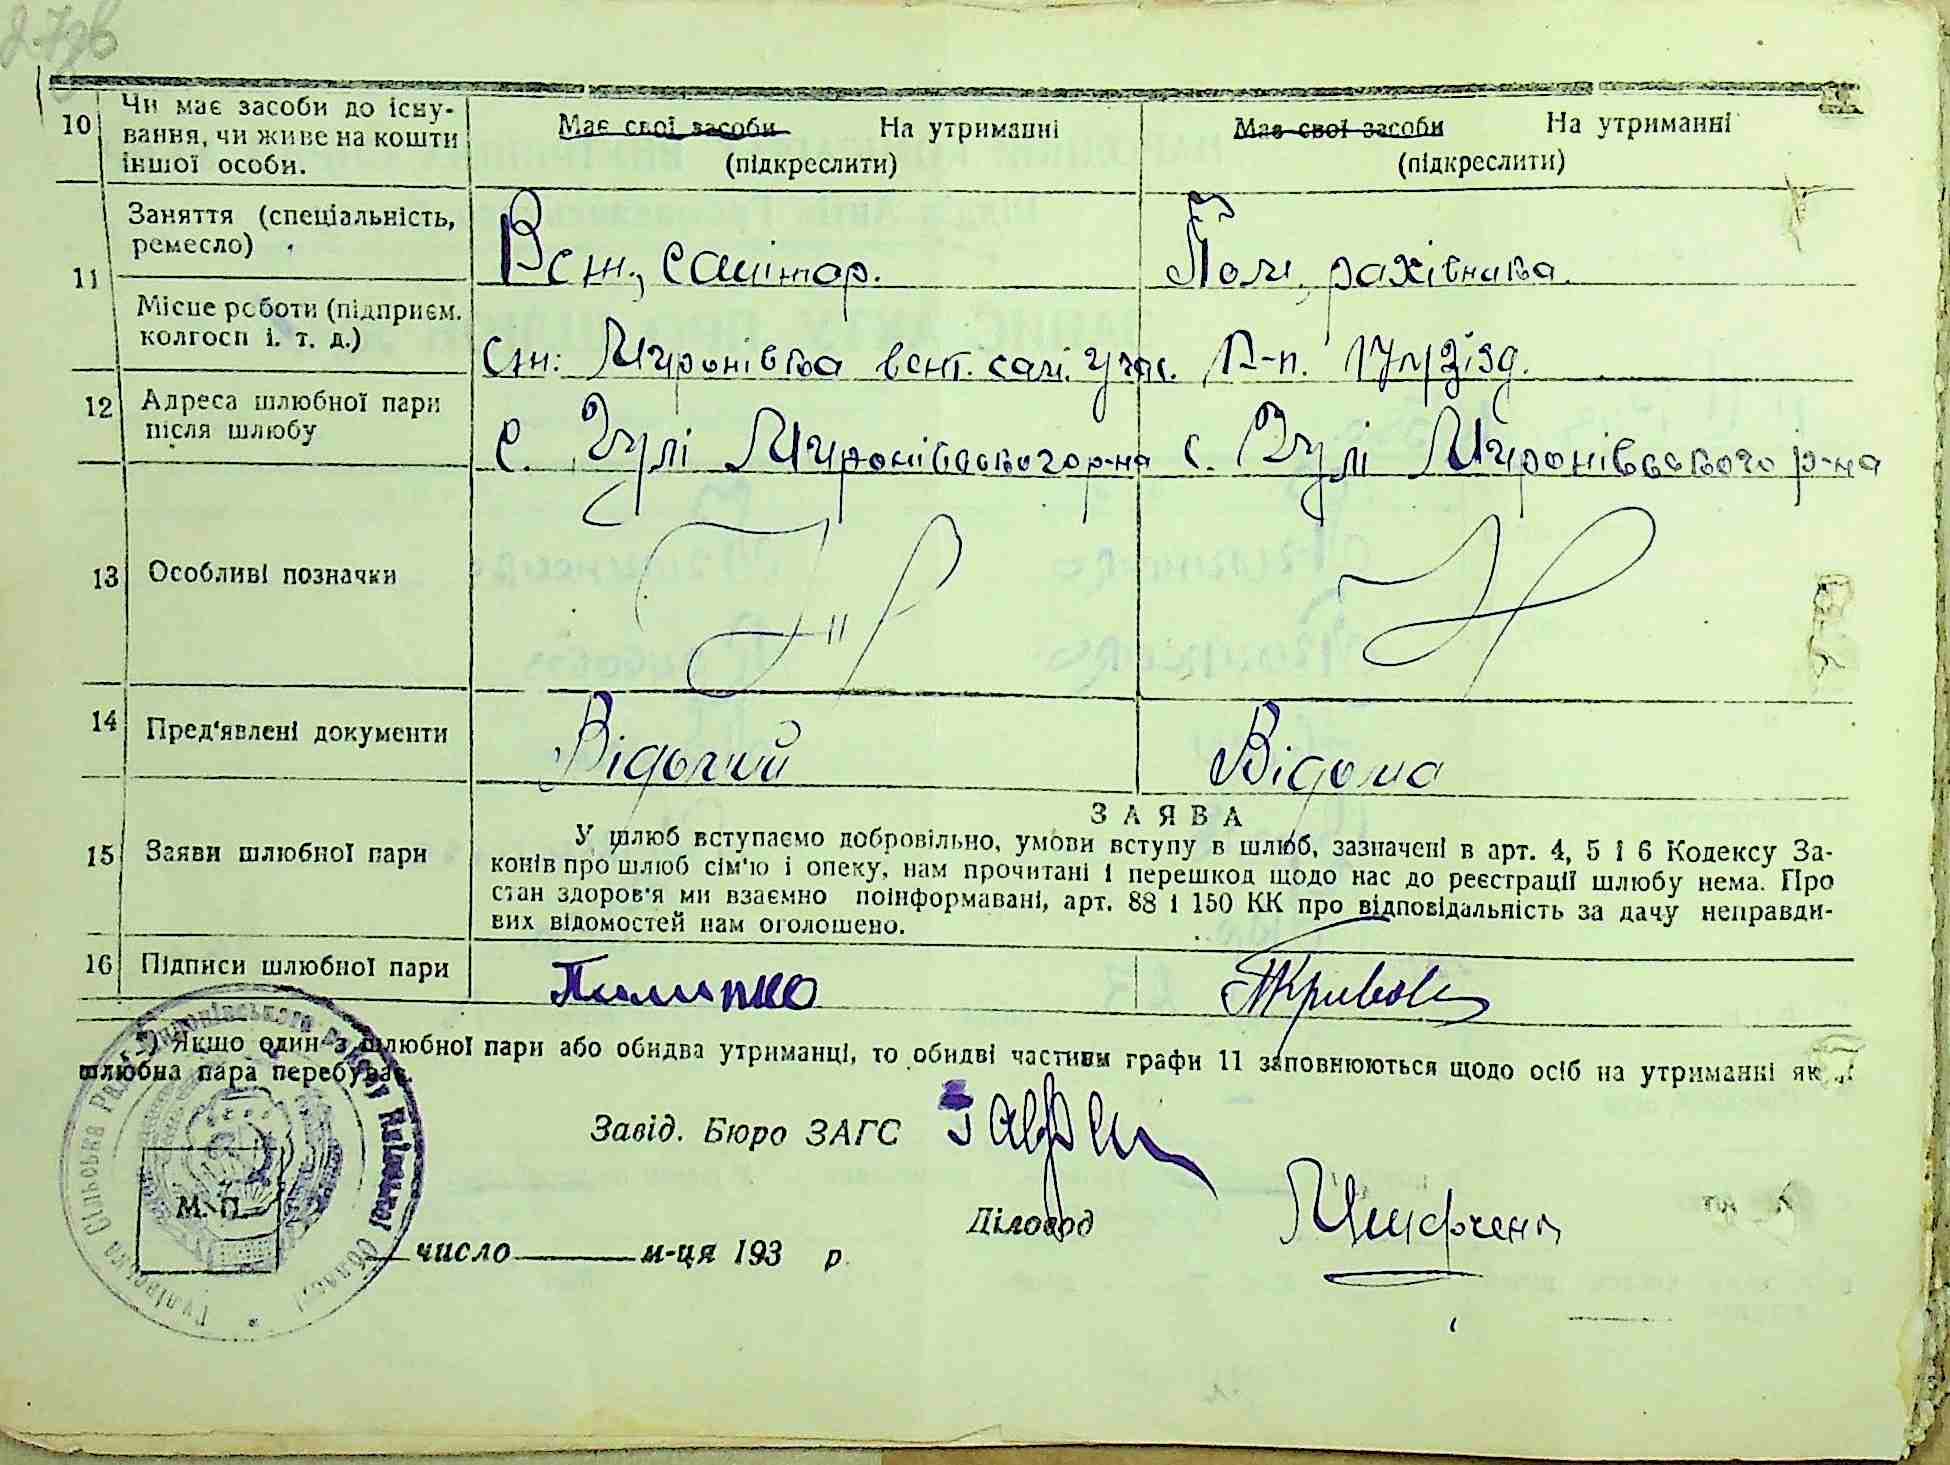 10 Чи має засоби до існу-
вання, чи живе на кошти
іншої особи.
Має свої засоби На утриманні
(підкреслити)
Має свої засоби На утриманні
(підкреслити)
11 Заняття (спеціальність,
ремесло)
Вет., санітар.
Пом., рахівника.
Місце роботи (підприєм.
колгосп і. т. д.)
Ст: Миронівка вет. сані. учас.
12 Адреса шлюбної пари
після шлюбу
с. Гулі Миронівського р-на
с. Гулі Миронівського р-на
13 Особливі позначки
14 Пред'явлені документи
Відомий
Відома
15 Заяви шлюбної пари
ЗАЯВА
У шлюб вступаємо добровільно, умови вступу в шлюб, зазначені в арт. 4, 5 і 6 Кодексу За-
конів про шлюб сім'ю і опеку, нам прочитані і перешкод щодо нас до реєстрації шлюбу нема. Про
стан здоров'я ми взаємно поінформавані, арт. 88 і 150 КК про відповідальність за дачу неправди-
вих відомостей нам оголошено.
16 Підписи шлюбної пари
Пилипко
) Якщо один з шлюбної пари або обидва утриманці, то обидві частини графи 11 заповнюються щодо осіб на утриманні як
шлюбна пара перебуває.
Завід. Бюро ЗАГС
Діловод
М. П.
число м-ця 193 р.
Гулівська Сільська Рада Миронівського р-ну Київської Області